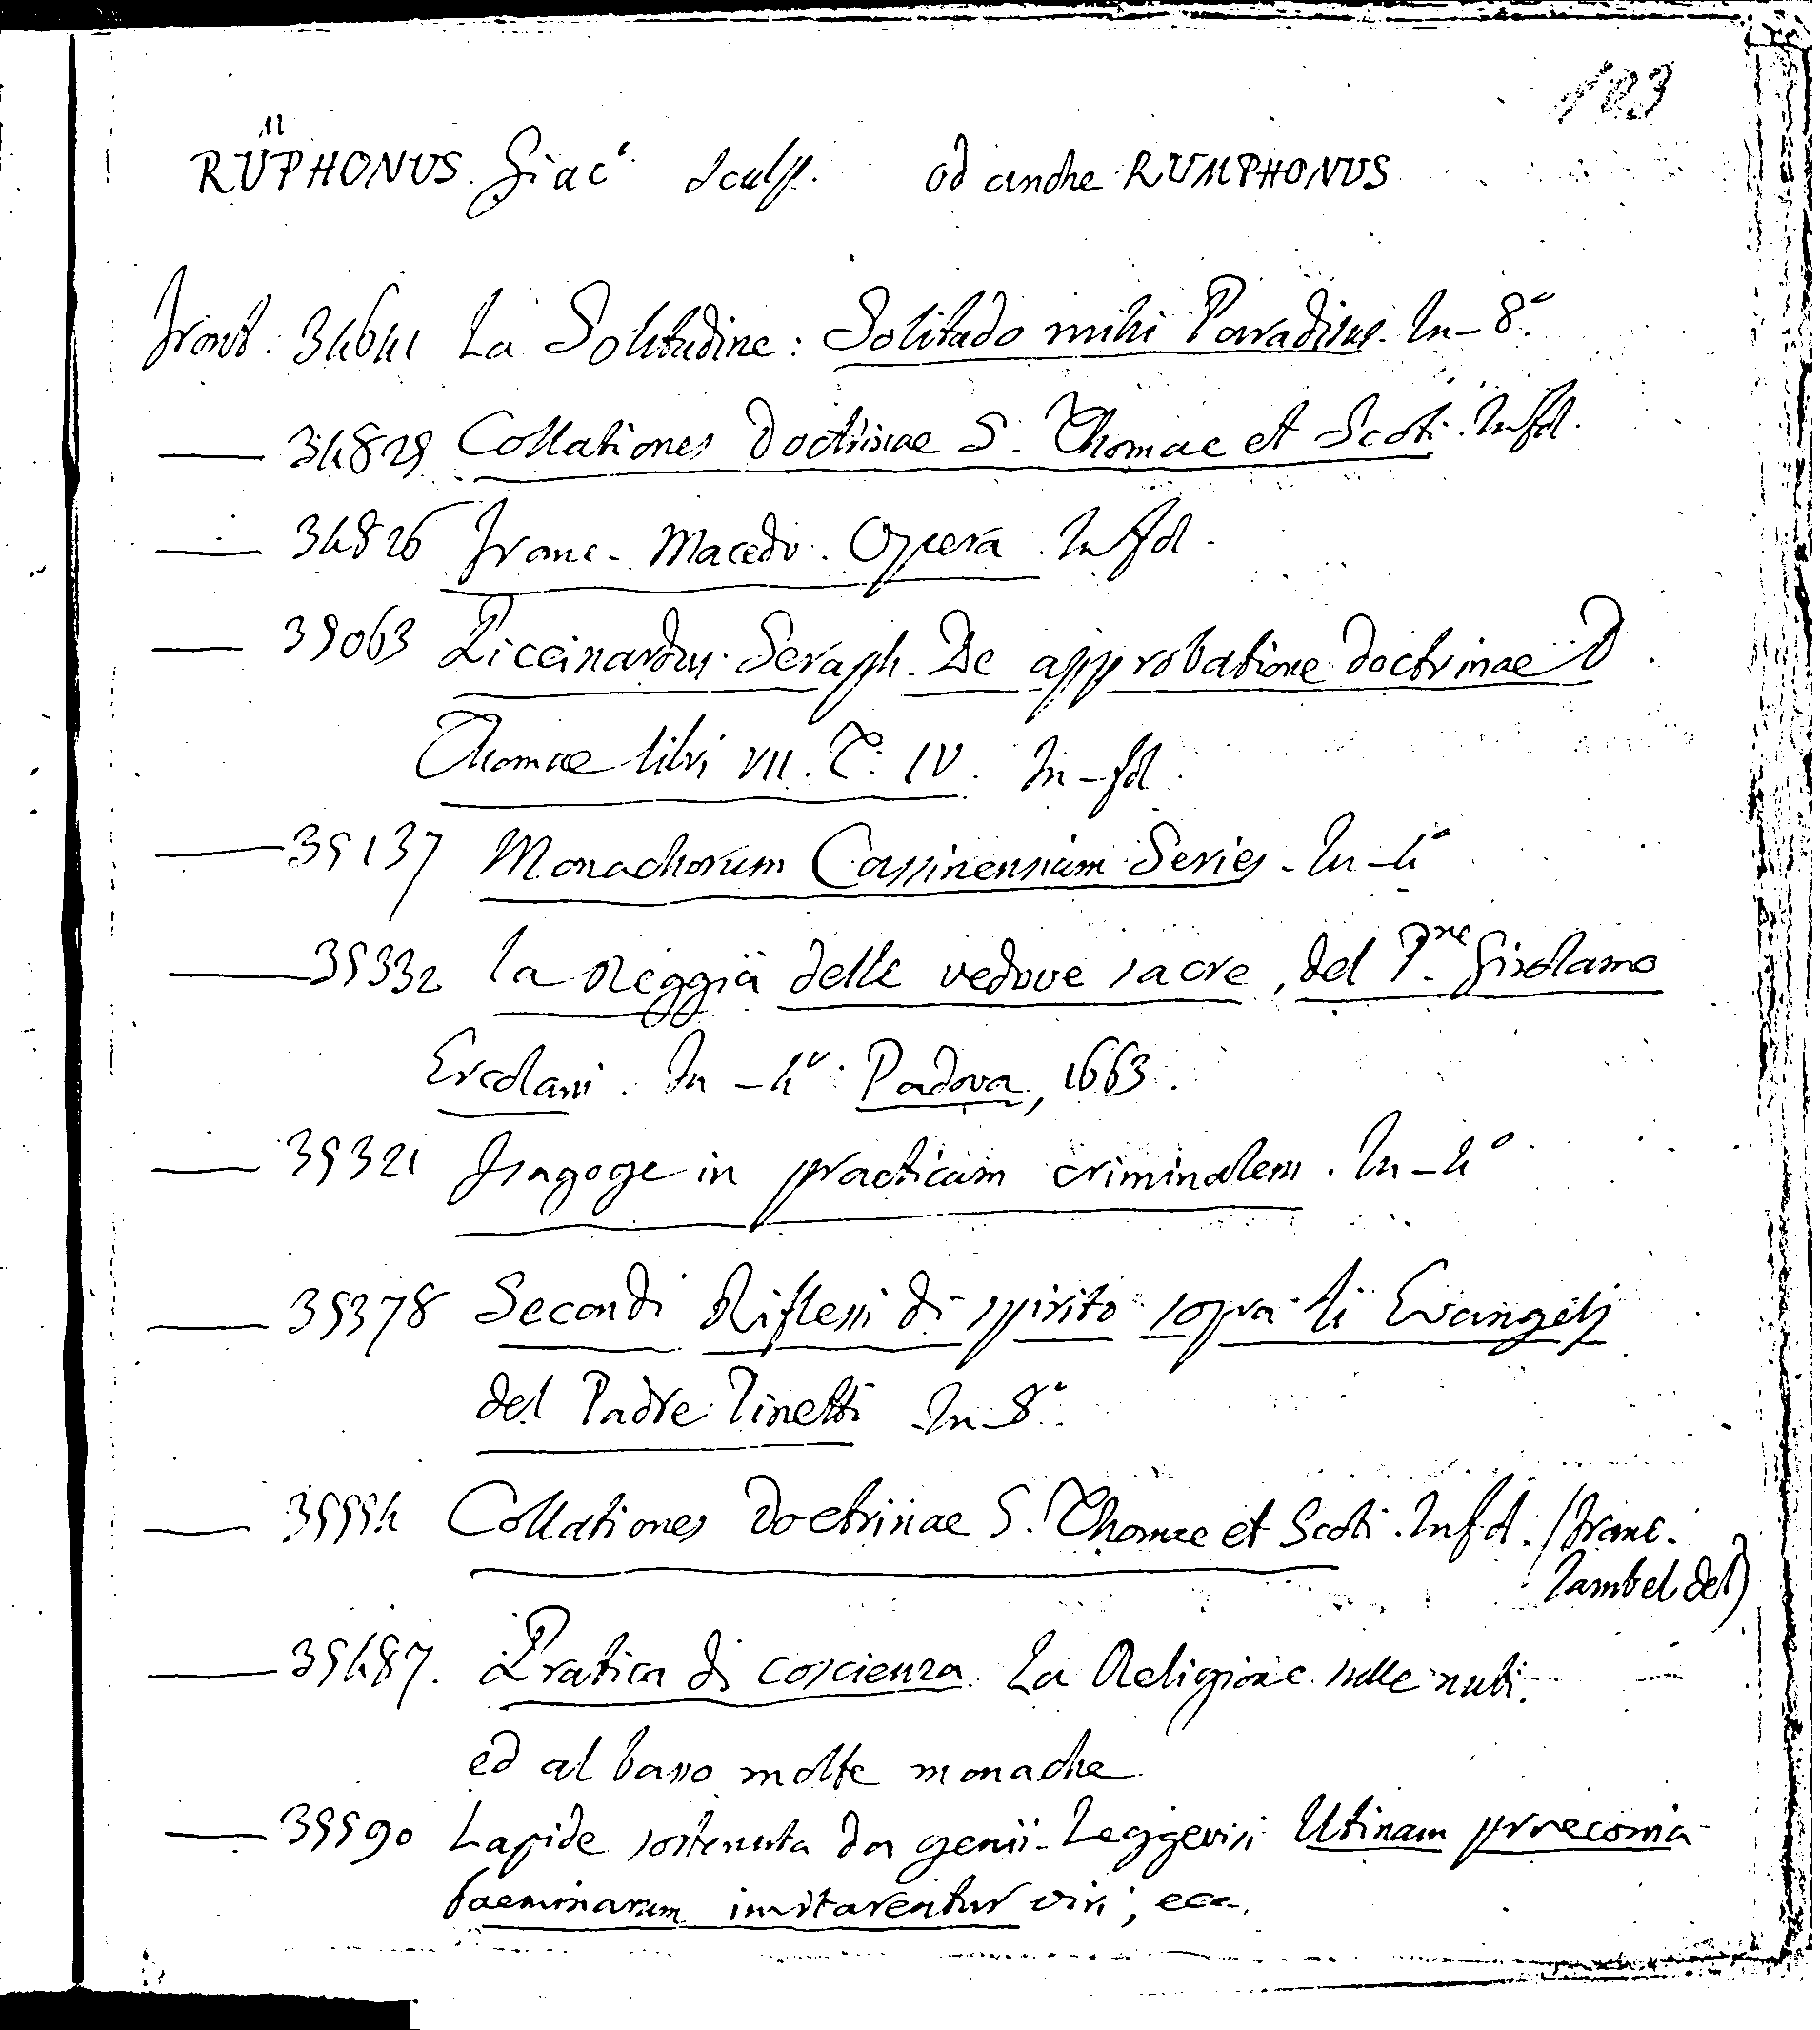 103
RŨPHONUS Giac° sculp. od anche RUMPHONUS
Front. 34641 La Solitudine: Solitudo mihi Paradisus. In-8°
— 34829 Collationes Doctrinae S. Thomae et Scoti. In fol.
— 34826 Franc. Macedo. Opera. In fol.
— 39063 Piccinardus. Seraph. De approbatione doctrinae D.
Thomae libri VII. T. IV. In-fol.
— 39137 Monachorum Cassinensium Series. In-4°
— 39332 La Reggia delle vedove sacre, del P.ne Girolamo
Ercolani. In-4°. Padova, 1663.
— 39321 Isagoge in practicam criminalem. In-4°
— 39378 Secondi Riflessi di spirito sopra li Evangelj
del Padre Pinetti In-8°
— Collationes Doctrinae S. Thomae et Scoti. In fol. (Franc.
Zambel del)
— 39487. Pratica di coscienza. La Religione sulle nubi.
ed al basso molte monache
— 39590 Lapide sostenuta da genii. Leggevisi Utinam praeconia
faeminarum imitarentur viri, ecc.